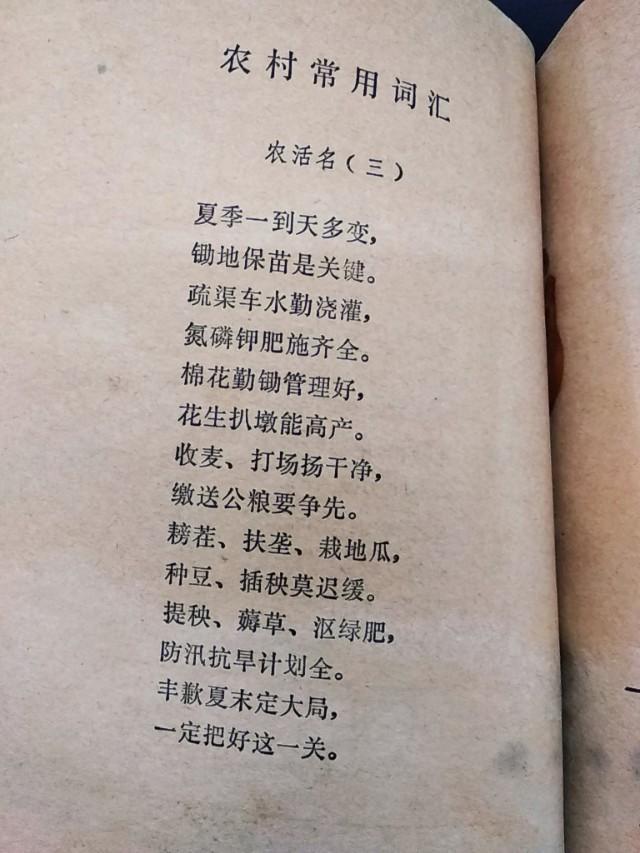 农村常用词汇
农活名（三）
夏季一到天多变，
锄地保苗是关键。
疏渠车水勤浇灌，
氮磷钾肥施齐全。
棉花勤锄管理好，
花生扒墩能高产。
收麦、打场扬干净，
缴送公粮要争先。
耪茬、扶垄、栽地瓜，
种豆、插秧莫迟缓。
提秧、薅草、沤绿肥，
防汛抗旱计划全。
丰歉夏末定大局，
一定把好这一关。